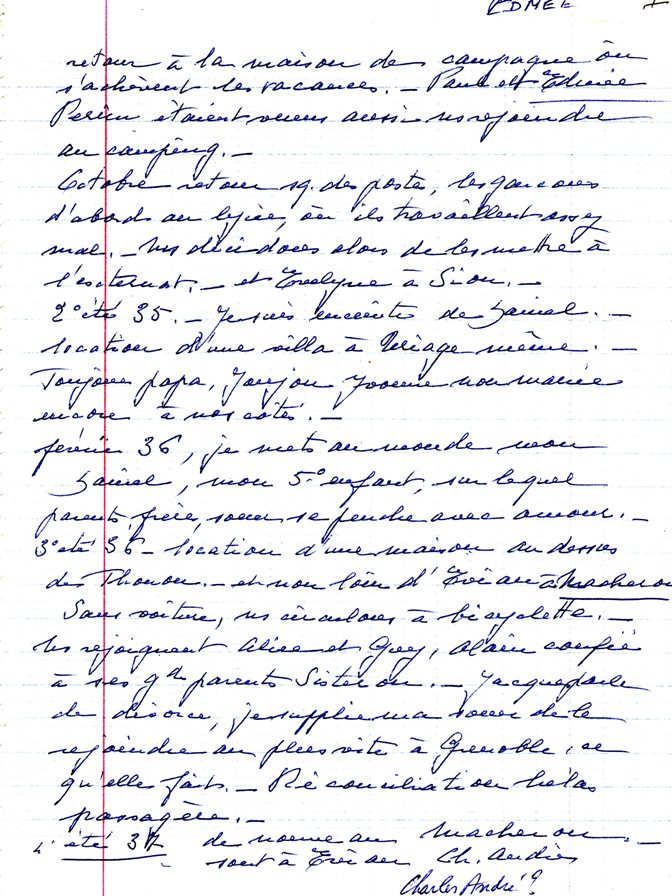 EDMEE
retour à la maison de campagne où
s'achèvent les vacances. – Paul et Edmée
Perein étaient venus aussi ns rejoindre
au camping. –
Octobre retour sq. des postes, les garçons
d'abord au lycée, où ils travaillent assez
mal. – Ns décidons alors de les mettre à
l'externat. – et Evelyne à Sion. –
2° été 35. – Je suis enceinte de Daniel. –
location d'une villa à Uriage même. –
Toujours papa, Jonjon Yvonne non mariée
encore à nos côtés. –
février 36, je mets au monde mon
Daniel, mon 5° enfant, sur lequel
parents, frère, soeur se penche avec amour. –
3° été 36 – location d'une maison au dessus
de Thonon. – et non loin d'Evian à Macheron
Sans voiture, ns circulons à bicyclette. –
Ns rejoignent Alice et Guy, Alain confié
à ses gds parents Sisteron. – Jacques parle
de divorce, je supplie ma soeur de le
rejoindre au plus vite à Grenoble, ce
qu'elle fait. – Réconciliation hélas
passagère. –
L'été 37 de nouveau Macheron. –
sont à Evian Ch. André
Charles André ?